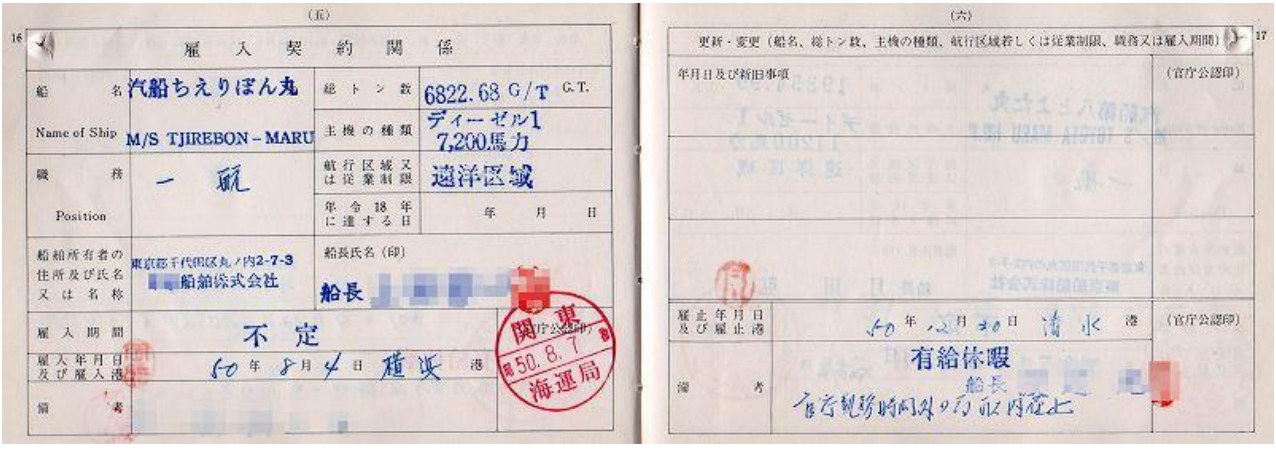 (五)
16
雇入契約関係
船名
Name of Ship
汽船ちえりぼん丸
M/S TJIREBON-MARU
総トン数
6822.68 G/T G.T.
主機の種類
ディーゼル1
7,200馬力
職務
Position
一航
航行区域又
は従業制限
遠洋区域
年令18年
に達する日
年 月 日
船舶所有者の
住所及び氏名
又は名称
東京都千代田区丸ノ内2-7-3
船舶株式会社
船長氏名(印)
船長
雇入期間
不定
(官庁公認印)
関東
50.8.7
海運局
雇入年月日
及び雇入港
50年8月4日 横浜 港
備考
(六)
17
更新・変更(船名、総トン数、主機の種類、航行区域若しくは従業制限、職務又は雇入期間)
年月日及び新旧事項
(官庁公認印)
雇止年月日
及び雇止港
50年12月20日 清水 港
(官庁公認印)
備考
有給休暇
船長
官庁執務時間外の